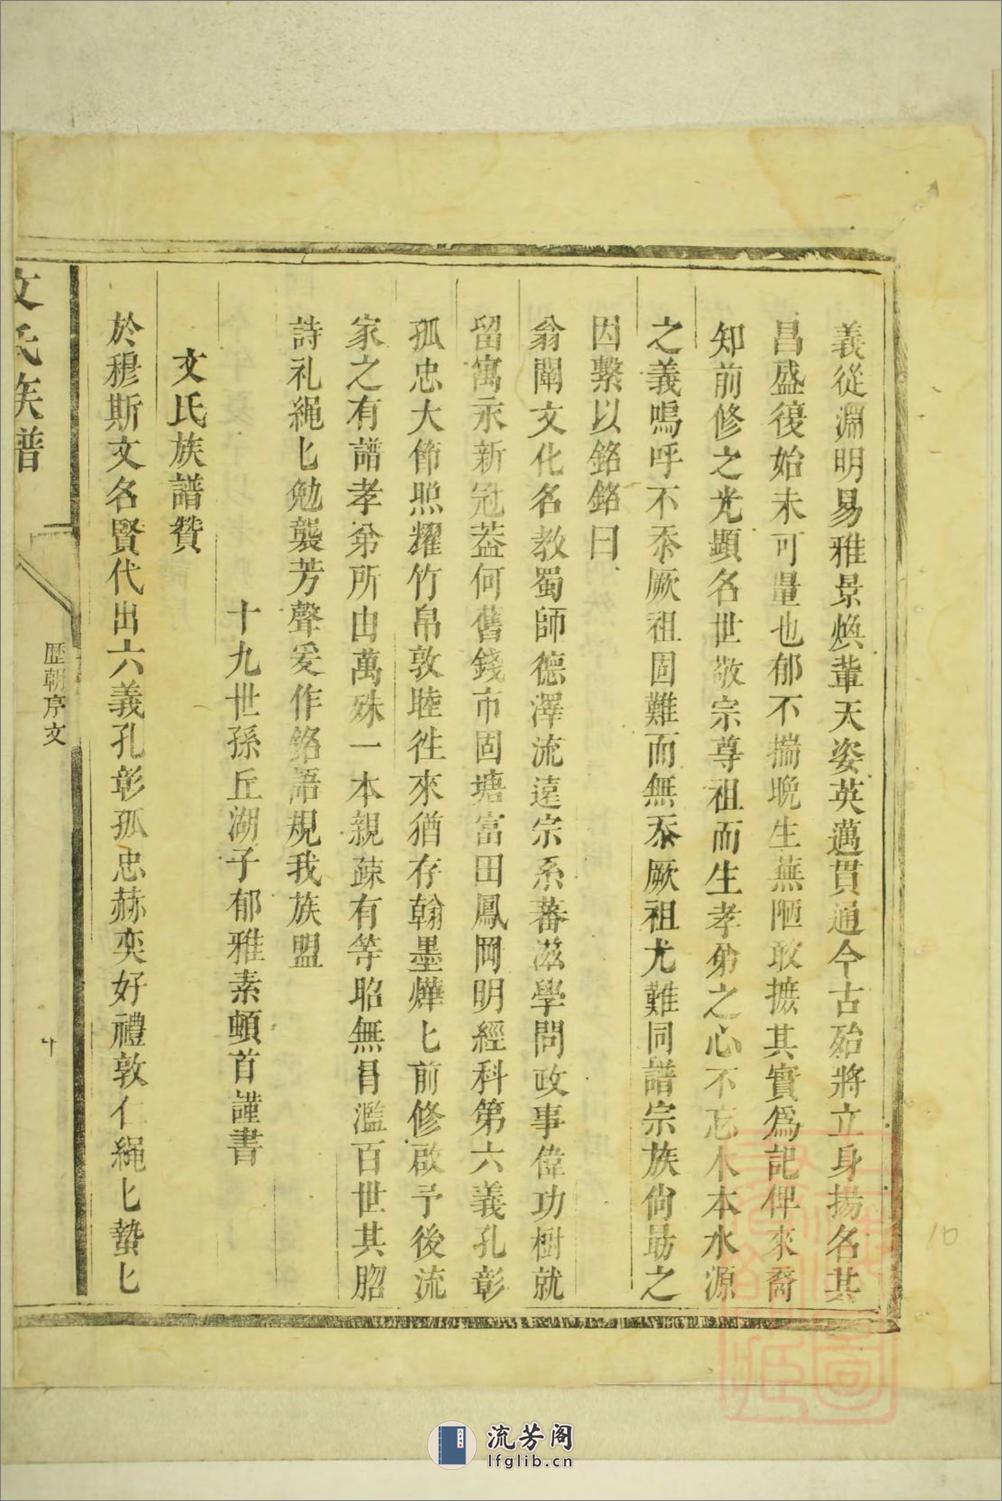 義從淵明易雅景煥輩天姿英邁貫通今古殆將立身揚名其
昌盛復始未可量也郁不揣晚生蕪陋敢摭其實爲記俾來裔
知前修之光顯名世敬宗尊祖而生孝弟之心不忘木本水源
之義嗚呼不忝厥祖固難而無忝厥祖尤難同譜宗族尙勗之
因繫以銘銘曰
翁闡文化名教蜀師德澤流遠宗系蕃滋學問政事偉功樹就
留寓永新冠葢何舊錢市固塘富田鳳岡明經科第六義孔彰
孤忠大節照耀竹帛敦睦徃來猶存翰墨燁匕前修啟予後流
家之有譜孝弟所由萬殊一本親疎有等昭無昌濫百世其詔
詩礼繩匕勉襲芳聲爰作銘語規我族盟
十九世孫丘湖子郁雅素頓首謹書
文氏族譜贊
於穆斯文名賢代出六義孔彰孤忠赫奕好禮敦仁繩匕蟄匕
文氏族譜
歷朝序文
十
10
流芳阁
lfglib.cn